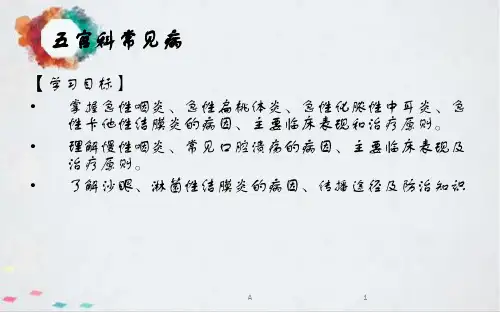 五官科常见病
【学习目标】
• 掌握急性咽炎、急性扁桃体炎、急性化脓性中耳炎、急
性卡他性结膜炎的病因、主要临床表现和治疗原则。
• 理解慢性咽炎、常见口腔溃疡的病因、主要临床表现及
治疗原则。
• 了解沙眼、淋菌性结膜炎的病因、传播途径及防治知识
A 1